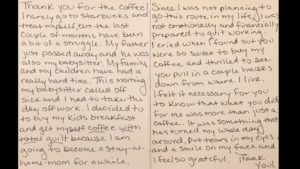 Thank you for the coffee!
I rarely go to Starbucks and
treat myself, but the last
couple of months have been
a bit of a struggle. My father
just passed away and he was
also my babysitter. My family
and my children have had a
really hard time. This morning
my babysitter called off
sick and I need to take the
day off work. I decided to
to buy my kids breakfast
and get myself coffee with
total guilt because I am
going to become a stay-at-
home mom for awhile.
Since I was not planning to
go this route in my life, I was
not emotionally and financially
prepared to quit working.
I cried when I found out you
were so sweet to buy my
coffee and thrilled to see
you pull in a couple houses
down from where I live.
I felt it necessary for you
to know that what you did
for me was more than just a
coffee. It was something that
has turned my whole day
around, put tears in my eyes
and a smile on my face and
I feel so grateful. Thank
You!